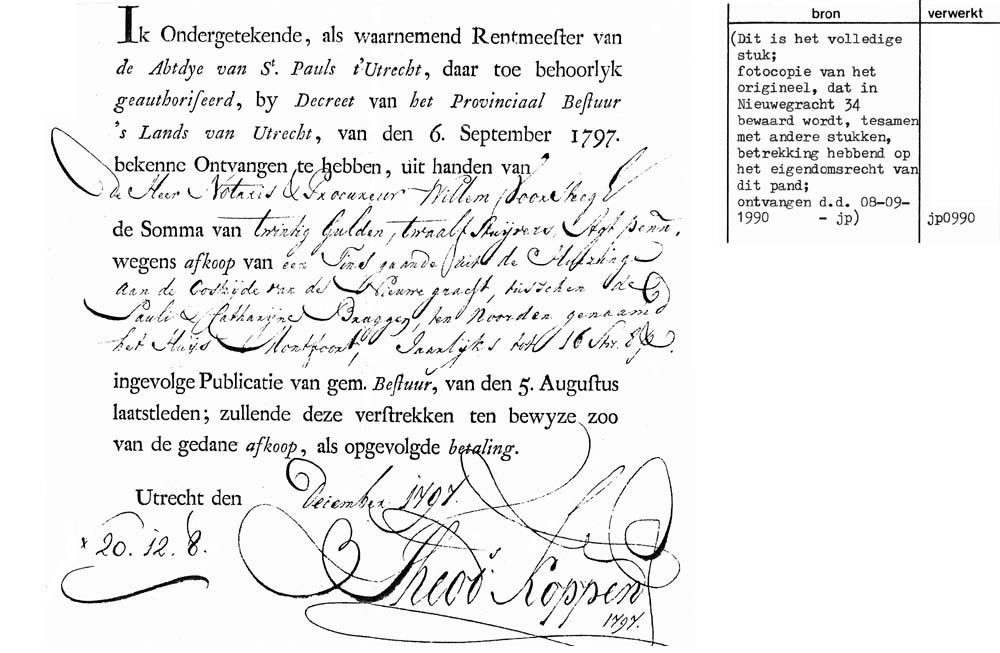 Ik Ondergetekende, als waarnemend Rentmeeſter van
de Abtdye van St. Pauls t'Utrecht, daar toe behoorlyk
geauthoriſeerd, by Decreet van het Provinciaal Beſtuur
's Lands van Utrecht, van den 6. September 1797.
bekenne Ontvangen te hebben, uit handen van
de Heer Notaris & Procureur Willem
de Somma van twintig Gulden, twaalf Stuyvers, Agt penn.
wegens afkoop van een Tins gaande uit de Huizinge
aan de Oostzijde van de Nieuwe gracht, tusschen de
Pauli & Catharijne Bruggen, ten Noorden genaamd
het Huijs Montfoort, Jaarlijks tot 16 Str. 8
ingevolge Publicatie van gem. Beſtuur, van den 5. Auguſtus
laatstleden; zullende deze verſtrekken ten bewyze zoo
van de gedane afkoop, als opgevolgde betaling.
Utrecht den December 1797.
20. 12. 8.
Theod's Koppen
1797.
bron
verwerkt
(Dit is het volledige
stuk;
fotocopie van het
origineel, dat in
Nieuwegracht 34
bewaard wordt, tesamen
met andere stukken,
betrekking hebbend op
het eigendomsrecht van
dit pand;
ontvangen d.d. 08-09-
1990 - jp)
jp0990